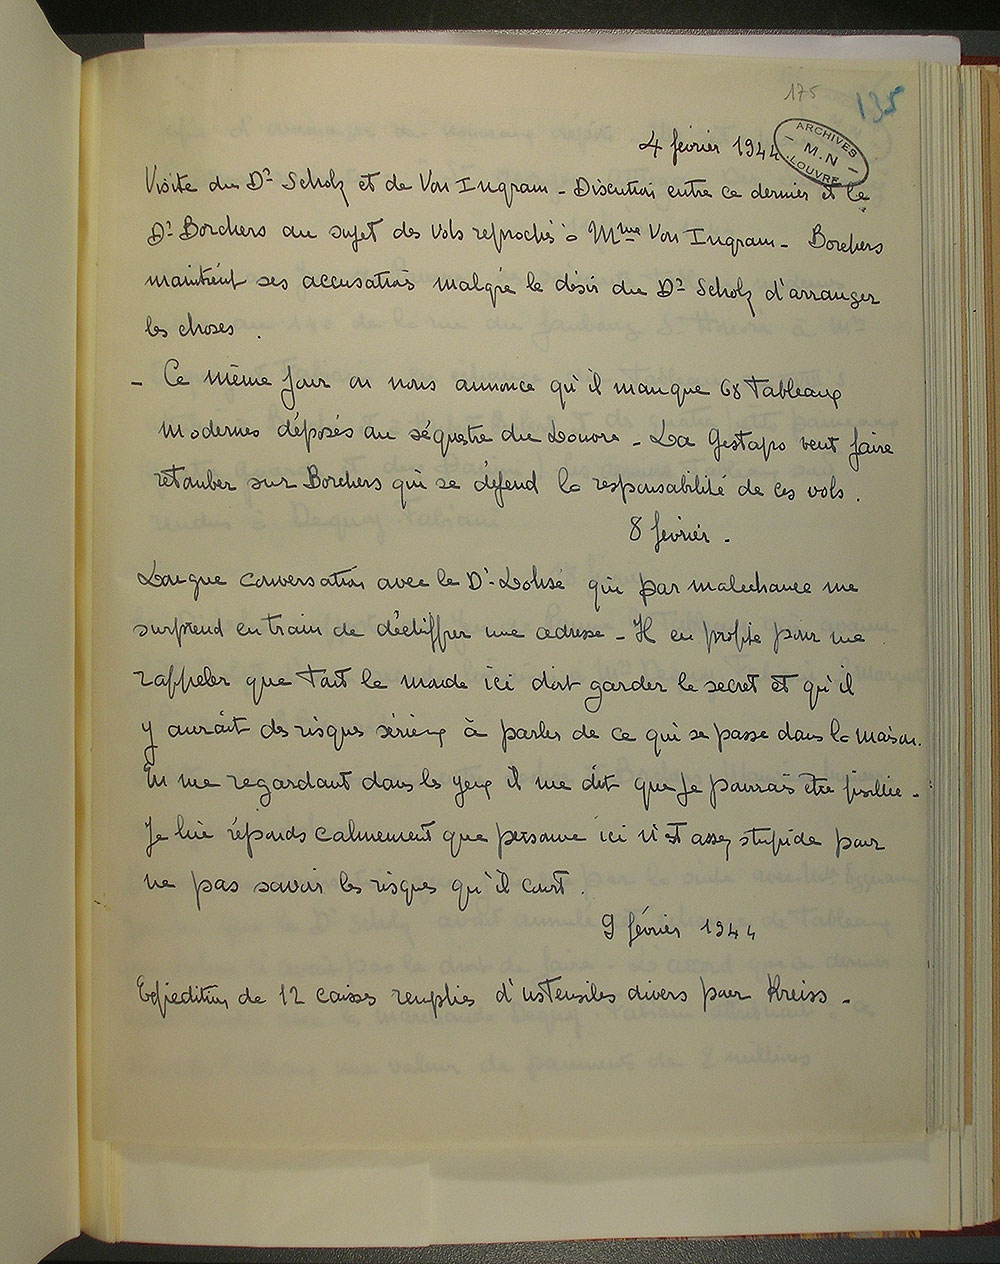 175
135
ARCHIVES
M.N
LOUVRE
4 février 1944
Visite du Dr Scholz et de Von Ingram - Discution entre ce dernier et le
Dr Borchers au sujet des vols reprochés à Mme Von Ingram - Borchers
maintient ses accusations malgré le désir du Dr Scholz d'arranger
les choses.
- Ce même jour on nous annonce qu'il manque 68 Tableaux
modernes déposés au séquestre du Louvre - La Gestapo veut faire
retomber sur Borchers qui se défend la responsabilité de ces vols.
8 février -
Longue conversation avec le Dr Lohse qui par malechance me
surprend en train de déchiffrer une adresse - Il en profite pour me
rappeler que tout le monde ici doit garder le secret et qu'il
y aurait des risques sérieux à parler de ce qui se passe dans la maison.
En me regardant dans les yeux il me dit que je pourrais être fusillée -
Je lui réponds calmement que personne ici n'est assez stupide pour
ne pas savoir les risques qu'il court.
9 février 1944
Expédition de 12 caisses remplies d'ustensiles divers pour Kreiss -